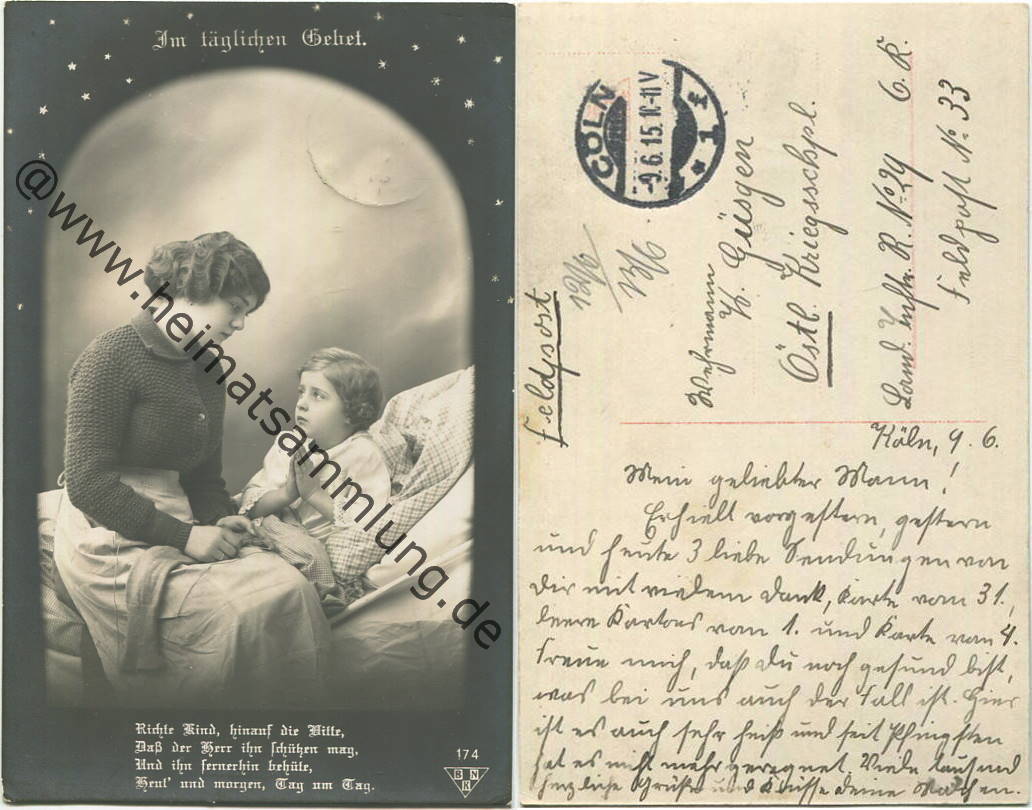 Im täglichen Gebet.
@www.heimatsammlung.de
Richte Kind, hinauf die Bitte,
Daß der Herr ihn schützen mag,
Und ihn fernerhin behüte,
Heut' und morgen, Tag um Tag.
174
BNK
CÖLN
-9.6.15.10-11V
* 1 f
12/6
13/6
Feldpost
Wehrmann
H. Güsgen
Östl. Kriegsschpl.
Landw. Inftr. R. No. 29 6. K.
Feldpost No. 33
Köln, 9. 6.
Mein geliebter Mann!
Erhielt vorgestern, gestern
und heute 3 liebe Sendungen von
Dir mit vielem Dank, Karte vom 31.,
leere Kartons vom 1. und Karte vom 4.
Freue mich, daß Du noch gesund bist,
was bei uns auch der Fall ist. Hier
ist es auch sehr heiß und seit Pfingsten
hat es nicht mehr geregnet. Viele tausend
herzliche Grüße und Küsse Deine